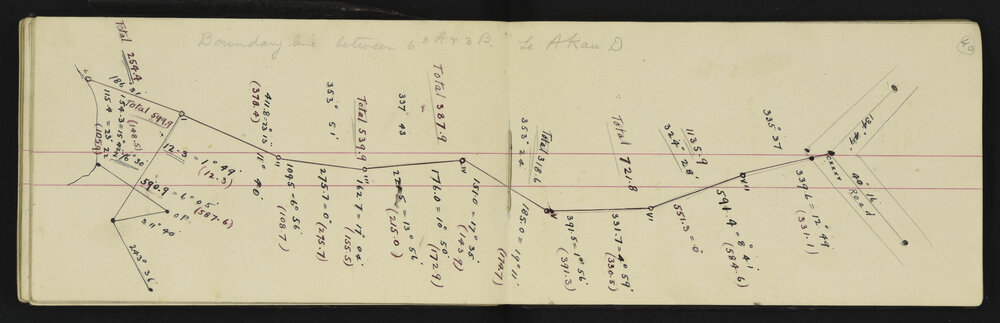 Boundary line between 63 A & 3 B. Le A Kau D.
40
Total 254.4
186° 31'
115.4 = 23° 22'
(105.9)
154.3 = 15° 42'
(148.5)
Total 599.9
276° 30'
12.3 = 1° 49'
(12.3)
590.9 = 6° 05'
(587.6)
OP.
311° 40'
243° 36'
411.8 = 23° 13'
(378.4)
11° 40'
II
109.5 = 6° 56'
(108.7)
353° 51'
275.7 = 0°
(275.7)
Total 539.9
III
162.7 = 17° 04'
(155.5)
337° 43'
= 13° 56'
(215.0)
Total 387.9
176.0 = 10° 50'
(172.9)
IV
151.0 = 17° 35'
(143.9)
353° 24'
185.0 = 19° 11'
(174.7)
Total 318.6
V
391.5 = 1° 56'
(391.3)
Total 721.8
331.7 = 4° 59'
(330.5)
VI
1135.9
324° 28'
551.3 = 0°
VII
591.4 = 8° 41'
(584.6)
335° 37'
339.6 = 12° 49'
(331.1)
xxxxx
134° 45'
40° 16'
Road